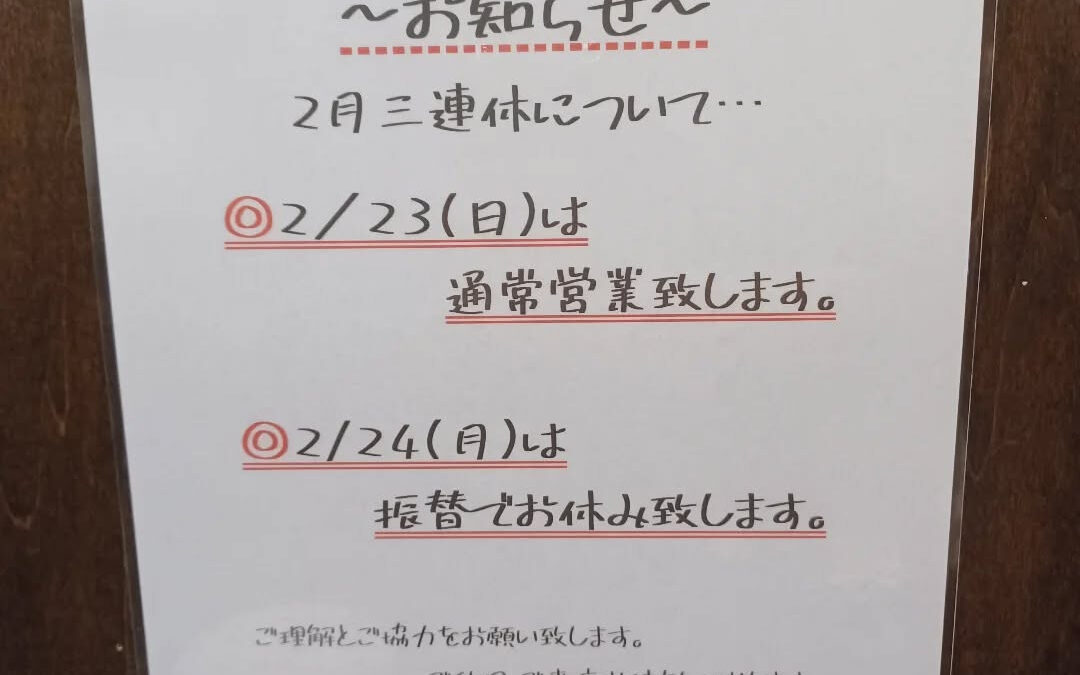 ～お知らせ～
2月三連休について…
◎2/23(日)は
通常営業致します。
◎2/24(月)は
振替でお休み致します。
ご理解とご協力をお願い致します。